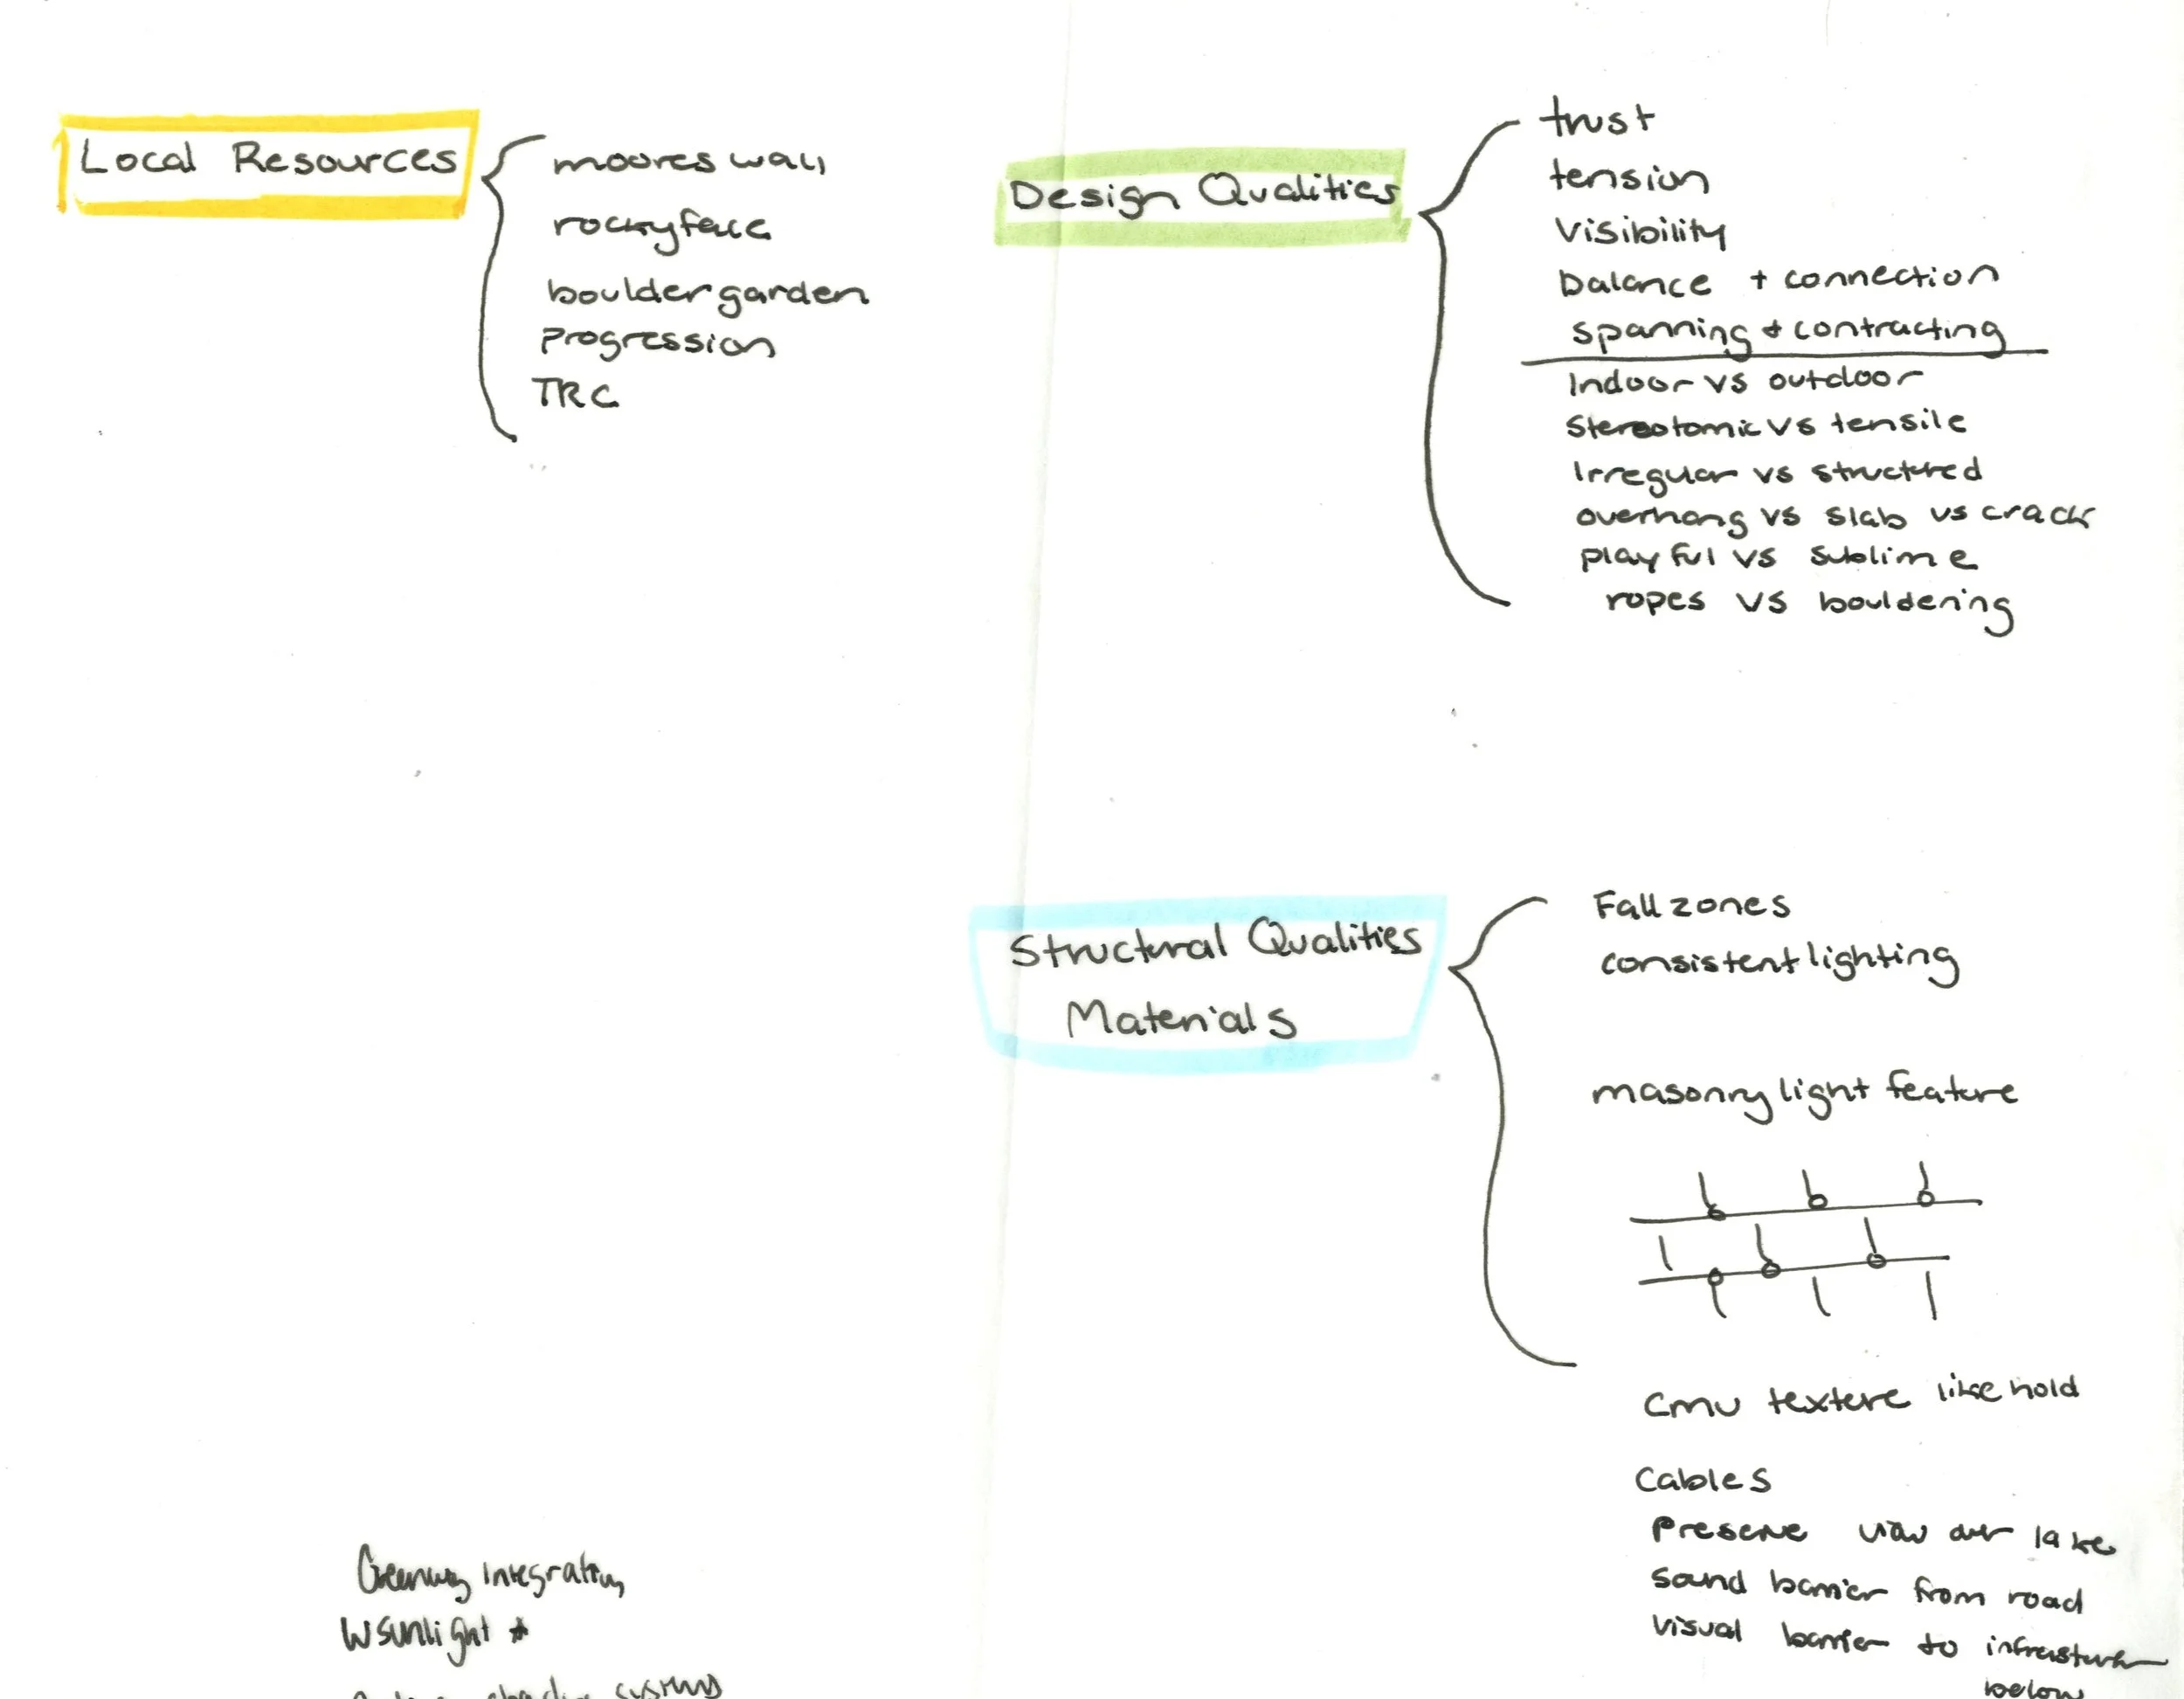 Local Resources
moores wall
rockyface
boulder garden
Progression
TRC
Design Qualities
trust
tension
Visibility
balance + connection
spanning + contracting
Indoor vs outdoor
Stereotomic vs tensile
Irregular vs structred
overhang vs slab vs crack
playful vs sublime
ropes vs bouldering
Structural Qualities
Materials
Fall zones
consistent lighting
masonry light feature
cmu texture like hold
Cables
Preserve view over lake
sound barrier from road
visual barrier to
below
Greenway Integration
W sunlight *
systems